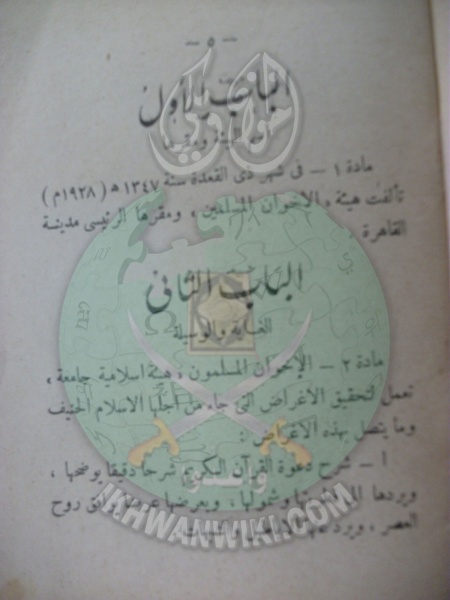 — ٥ —
الباب الأول
مادة ١ — فى شهر ذى القعدة سنة ١٣٤٧ ه (١٩٢٨م)
تألفت هيئة « الإخوان المسلمين » ومقرها الرئيسى مدينة
القاهرة
الباب الثانى
الغاية والوسيلة
مادة ٢ — الإخوان المسلمون « هيئة اسلامية جامعة »
تعمل لتحقيق الأغراض التى جاء من أجلها الاسلام الحنيف
وما يتصل بهذه الاغراض :
ا — شرح دعوة القرآن الكريم شرحا دقيقا يوضحها ،
ويردها إلى وشمولها ، ويعرضها يوافق روح
العصر ، ويرد عنها
إخوان ويكي
وأعدوا
IKHWANWIKI.COM